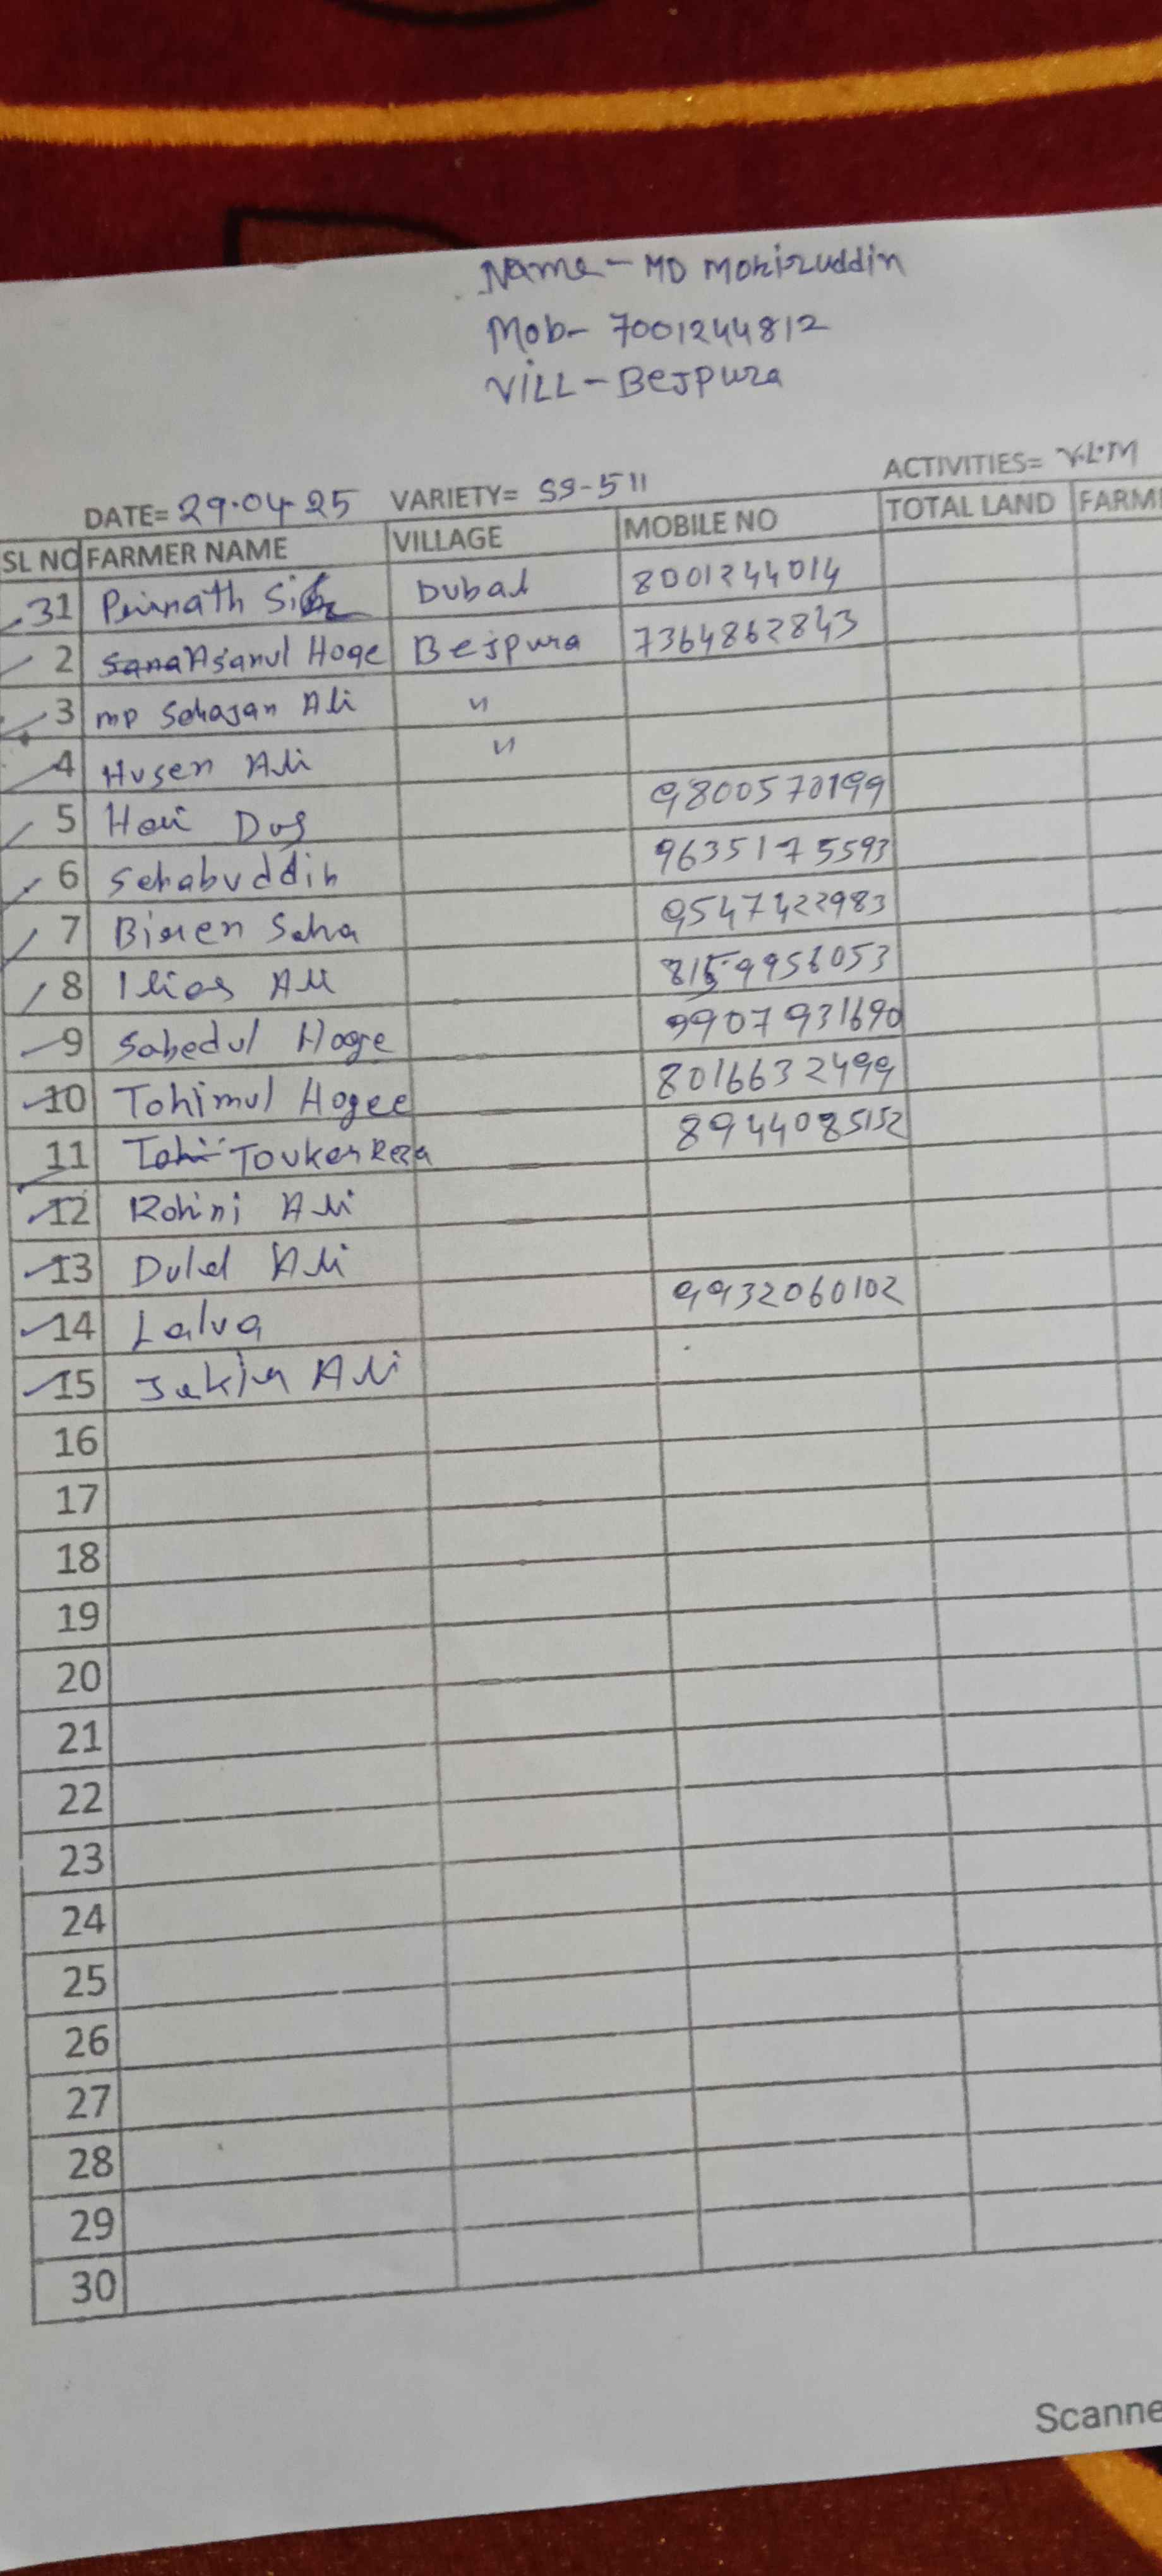 Name - MD Mohiruddin
Mob- 7001244812
VILL - Bejpura
ACTIVITIES= V.L.M
DATE= 29.04.25 VARIETY= SS-511
SL NO FARMER NAME VILLAGE MOBILE NO TOTAL LAND FARM
31 8001244014
2 Asanul Hoqe Bejpura 7364862843
3 MD Sohajan Ali "
4 Husen Ali "
5 Hari Das 9800570199
6 Sehabuddin 9635175593
7 Biren Saha 9547422983
8 Ilias Ali 8159956053
9 Sahedul Hoqe 9907931690
10 Tohimul Hogee 8016632499
11 Reza 8944085152
12 Rohini Ali
13 Dulal Ali
14 Lalua 9932060102
15 Jakir Ali
16
17
18
19
20
21
22
23
24
25
26
27
28
29
30
Scanne